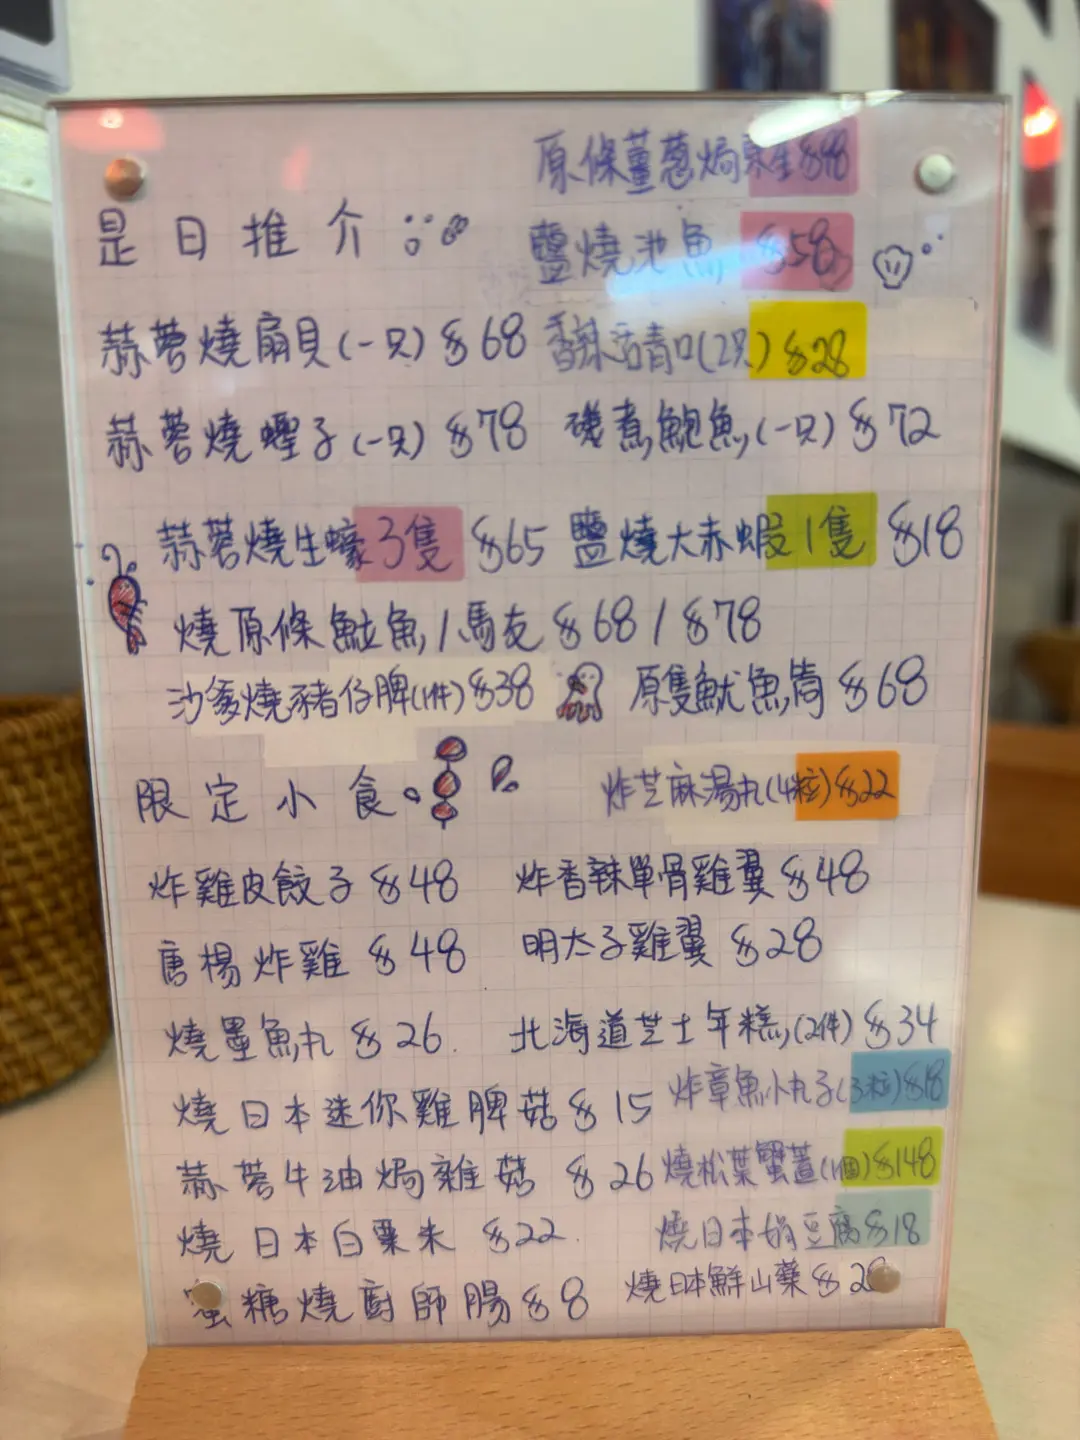 原條薑蔥焗
是日推介
鹽燒池魚 $58
蒜蓉燒扇貝(一只) $68 香辣活青口(2只) $28
蒜蓉燒蟶子(一只) $78 磯煮鮑魚(一只) $72
蒜蓉燒生蠔3隻 $65 鹽燒大赤蝦1隻 $18
燒原條魚立魚/馬友 $68/$78
沙爹燒豬仔脾(1件) $38 原隻魷魚筒 $68
限定小食 炸芝麻湯丸(4粒) $22
炸雞皮餃子 $48 炸香辣單骨雞翼 $48
唐楊炸雞 $48 明太子雞翼 $28
燒墨魚丸 $26 北海道芝士年糕(2件) $34
燒日本迷你雞脾菇 $15 炸章魚小丸子(3粒) $18
蒜蓉牛油焗雜菇 $26 燒松葉蟹蓋(1個) $148
燒日本白粟米 $22 燒日本絹豆腐 $18
蜜糖燒廚師腸 $8 燒日本鮮山藥